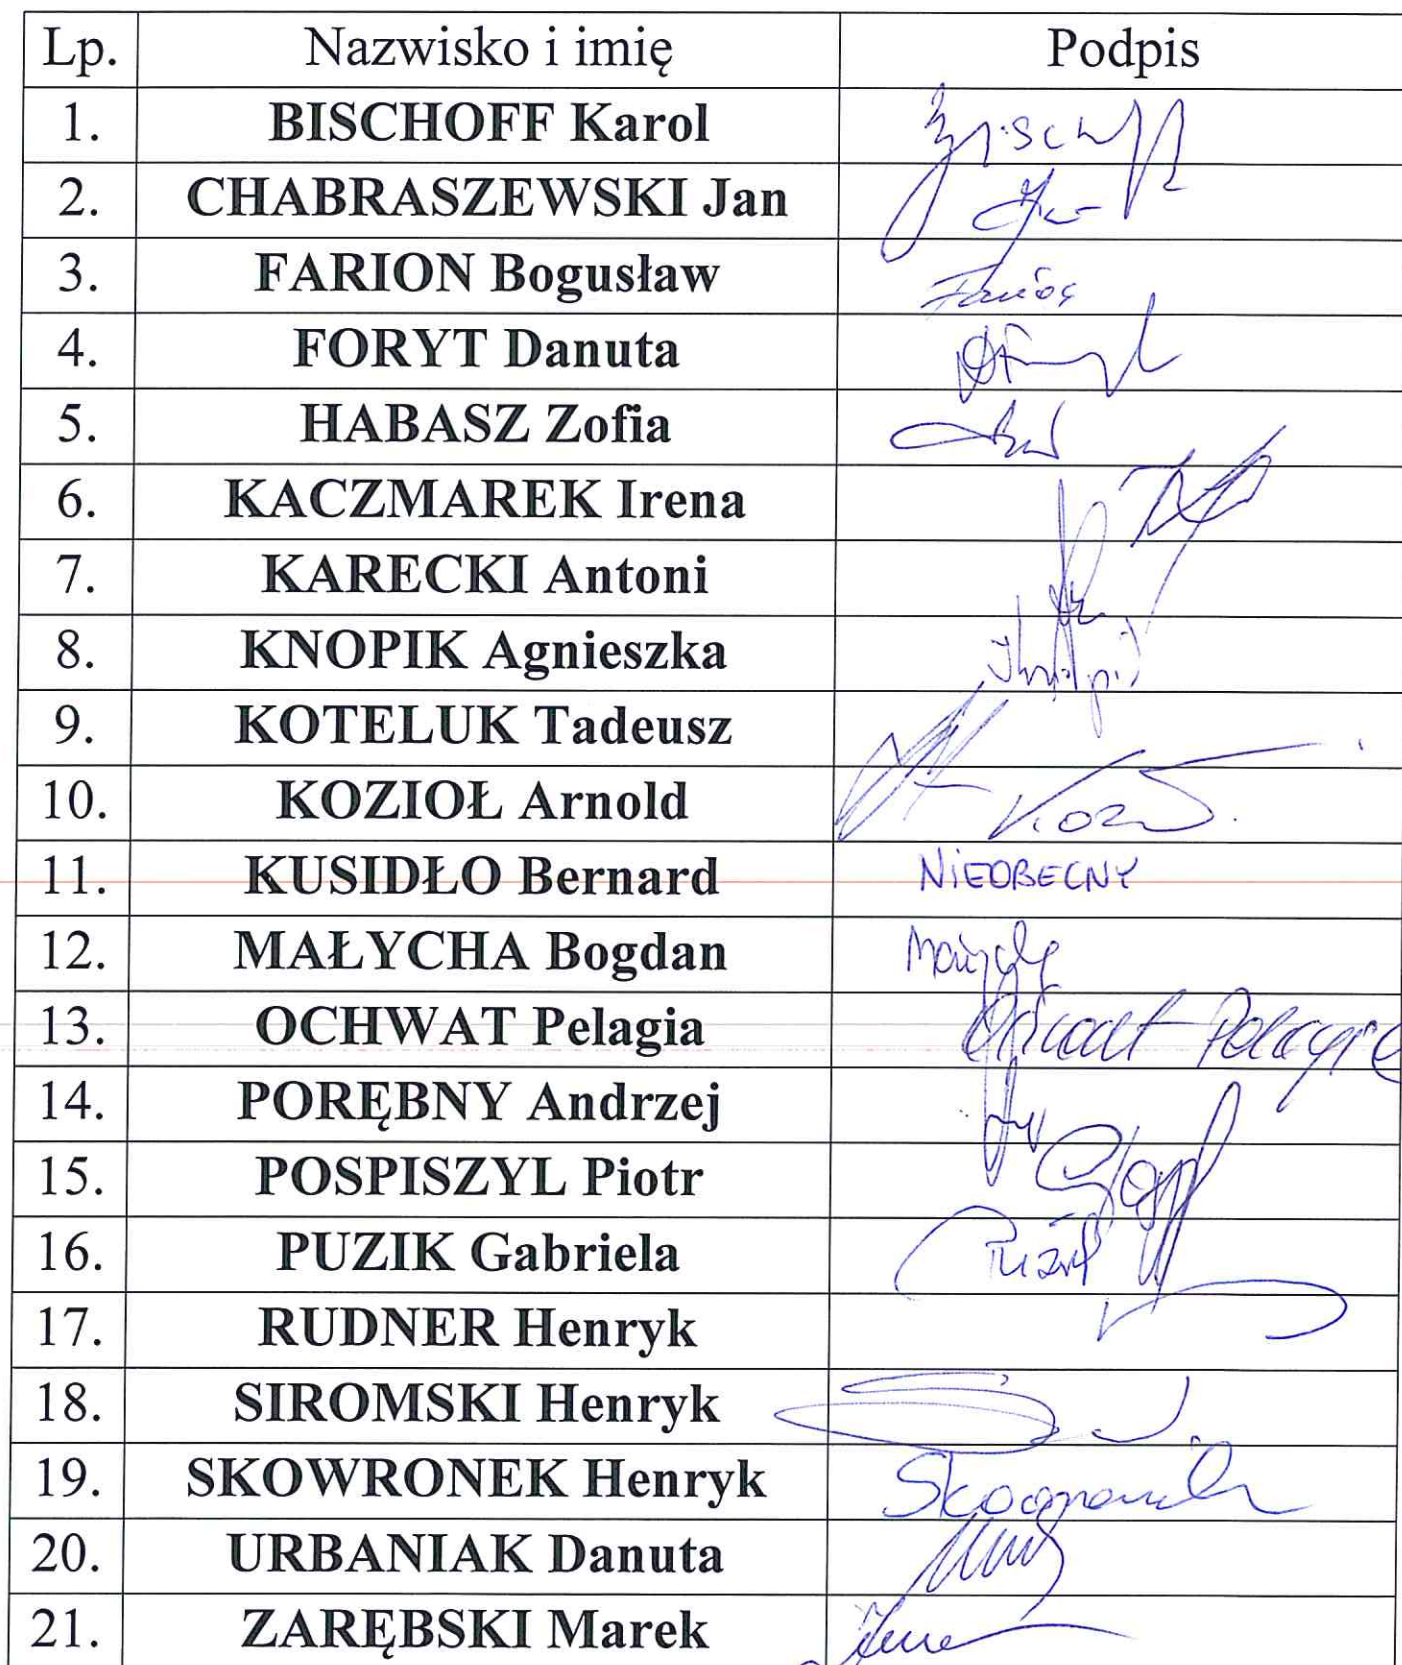 Lp. Nazwisko i imię Podpis
1. BISCHOFF Karol Bischoff
2. CHABRASZEWSKI Jan
3. FARION Bogusław
4. FORYT Danuta
5. HABASZ Zofia
6. KACZMAREK Irena
7. KARECKI Antoni
8. KNOPIK Agnieszka
9. KOTELUK Tadeusz
10. KOZIOŁ Arnold
11. KUSIDŁO Bernard NIEOBECNY
12. MAŁYCHA Bogdan
13. OCHWAT Pelagia Ochwat Pelagia
14. PORĘBNY Andrzej
15. POSPISZYL Piotr
16. PUZIK Gabriela Puzik
17. RUDNER Henryk
18. SIROMSKI Henryk
19. SKOWRONEK Henryk Skowronek
20. URBANIAK Danuta
21. ZARĘBSKI Marek